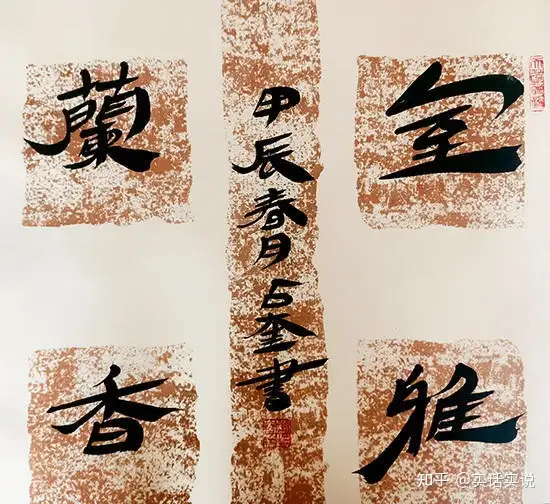 室雅
蘭香
甲辰春月奎書
知乎 @实话实说